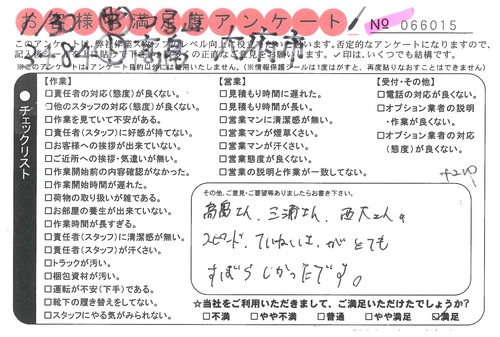 お客様満足度アンケート
No 066015
このアンケートは、弊社作業スタッフのレベル向上に役立ています。否定的なアンケートになりますので、
※このアンケートは、アンケート目的以外には使用いたしません。(※情報保護シールは1度はがすと、再度貼りなおすことはできません)
チェックリスト
【作業】
□責任者の対応(態度)が良くない。
□他のスタッフの対応(態度)が良くない。
□作業を見ていて不安がある。
□責任者(スタッフ)に好感が持てない。
□お客様への挨拶が出来ていない。
□ご近所への挨拶・気遣いが無い。
□作業開始前の内容確認がなかった。
□作業開始時間が遅れた。
□荷物の取り扱いが雑である。
□お部屋の養生が出来ていない。
□作業時間が長すぎる。
□責任者(スタッフ)に清潔感が無い。
□責任者(スタッフ)が汗くさい。
□トラックが汚い。
□梱包資材が汚い。
□運転が不安(下手)である。
□靴下の履き替えをしてない。
□スタッフにやる気がみられない。
【営業】
□見積もり時間に遅れた。
□見積もり時間が長い。
□営業マンに清潔感が無い。
□営業マンが煙草くさい。
□営業マンが汗くさい。
□営業態度が良くない。
□営業の説明と作業が一致してない。
【受付・その他】
□電話の対応が良くない。
□オプション業者の説明
・作業が良くない。
□オプション業者の対応
(態度)が良くない。
その他、ご意見・ご要望等ありましたらお書き下さい。
高畠さん、三浦さん、西大さんの
スピード、ていねいさ、がとても
すばらしかったです。
☆当社をご利用いただきまして、ご満足いただけたでしょうか?
□不満 □やや不満 □普通 □やや満足 ☑満足